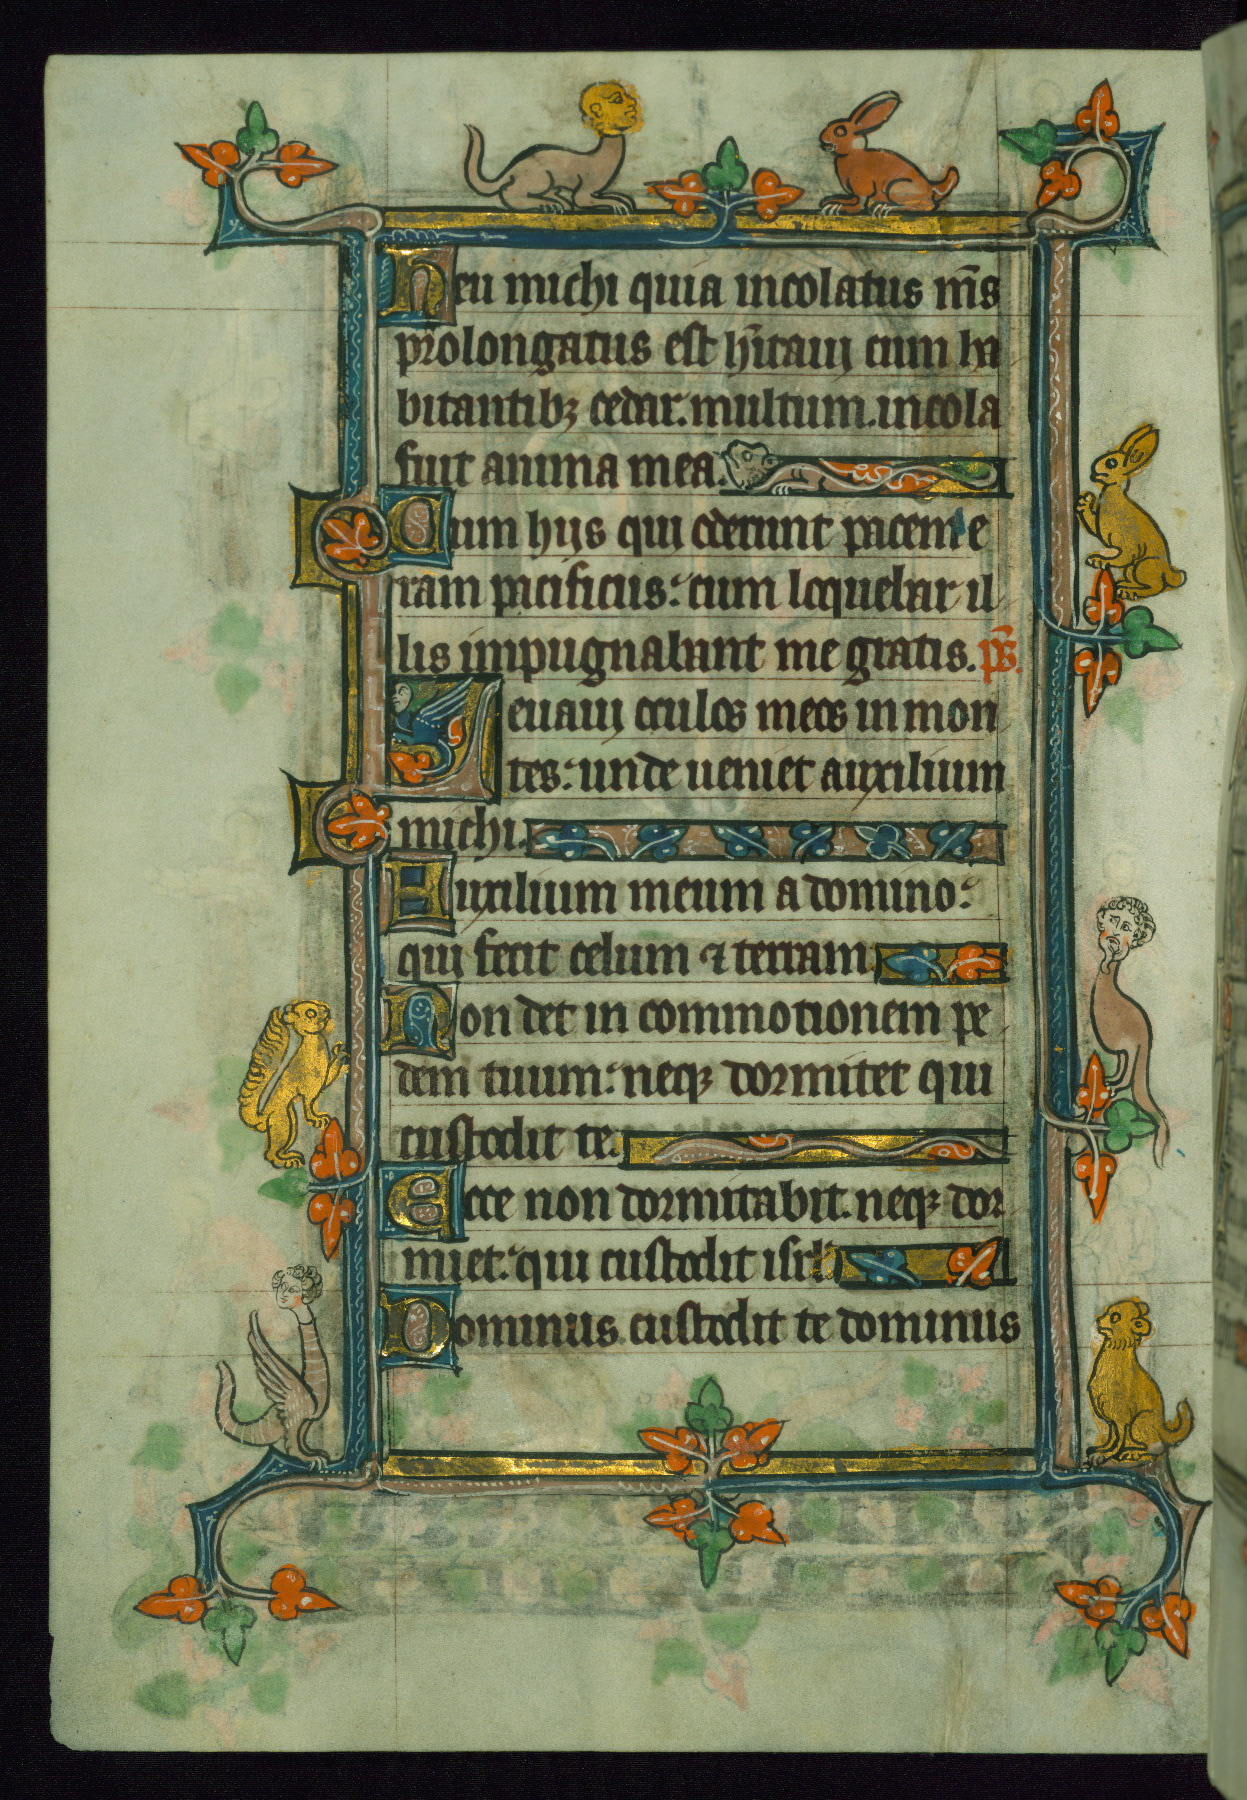 Heu michi quia incolatus m̄s
prolongatus est h̄itaui cum ha
bitantibꝫ cedar. multum. incola
fuit anima mea.
Cum hijs qui oderunt pacem e
ram pacificus: cum loquebar il
lis impugnabant me gratis. p̄s.
Leuaui oculos meos in mon
tes: unde ueniet auxilium
michi.
Auxilium meum a domino:
qui fecit celum ⁊ terram
Non det in commotionem pe
dem tuum: neqꝫ dormitet qui
custodit te.
Ecce non dormitabit. neqꝫ dor
miet: qui custodit isrl̄
Dominus custodit te dominus